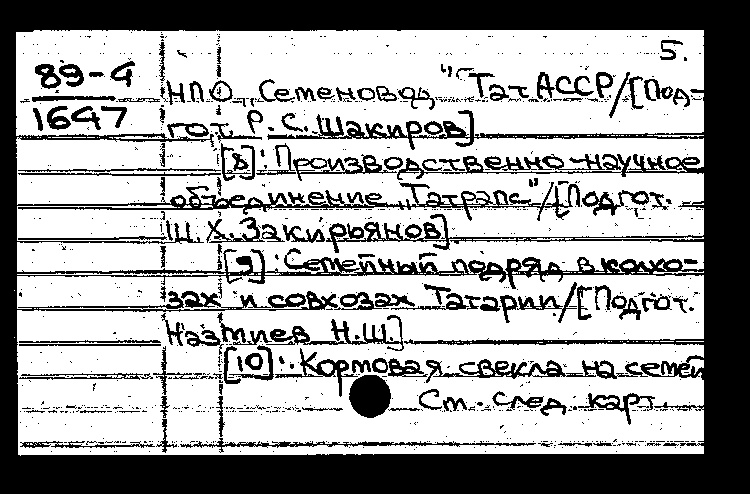 5.
89-4
1647
НПО „Семеновод" ТатАССР/[Под-
гот. Р. С. Шакиров]
[8]: Производственно-научное
объединение „Татрапс"/[Подгот.
Ш. Х. Закирьянов]
[9]: Семейный подряд в колхо-
зах и совхозах Татарии/[Подгот.
Назмиев Н.Ш.]
[10]: Кормовая свекла на семей
См. след. карт.